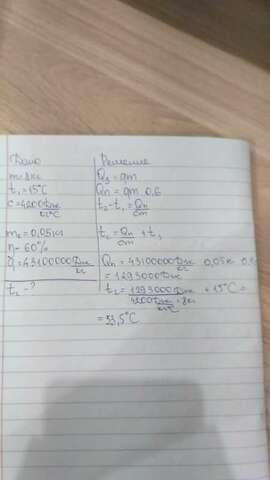 Дано
m=8кг
t₁=15°C
c=4200 Дж/кг°C
m₂=0,05кг
η=60%
q=43100000 Дж/кг
t₂-?
Решение
Qз=qm
Qп=qm 0,6
t₂-t₁=Qп/cm
t₂=Qп/cm+t₁
Qп=43100000 Дж/кг 0,05кг
=1293000Дж
t₂=1293000Дж/4200 Дж/кг°C 8кг+15°C=
=53,5°C